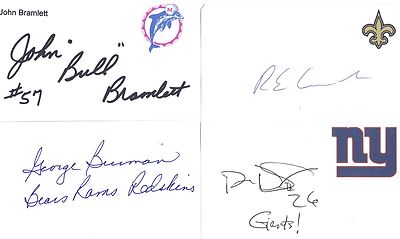 John Bramlett
John "Bull"
Bramlett
#57
R E
George Burman
Bears Rams Redskins
ny
26
Gents!